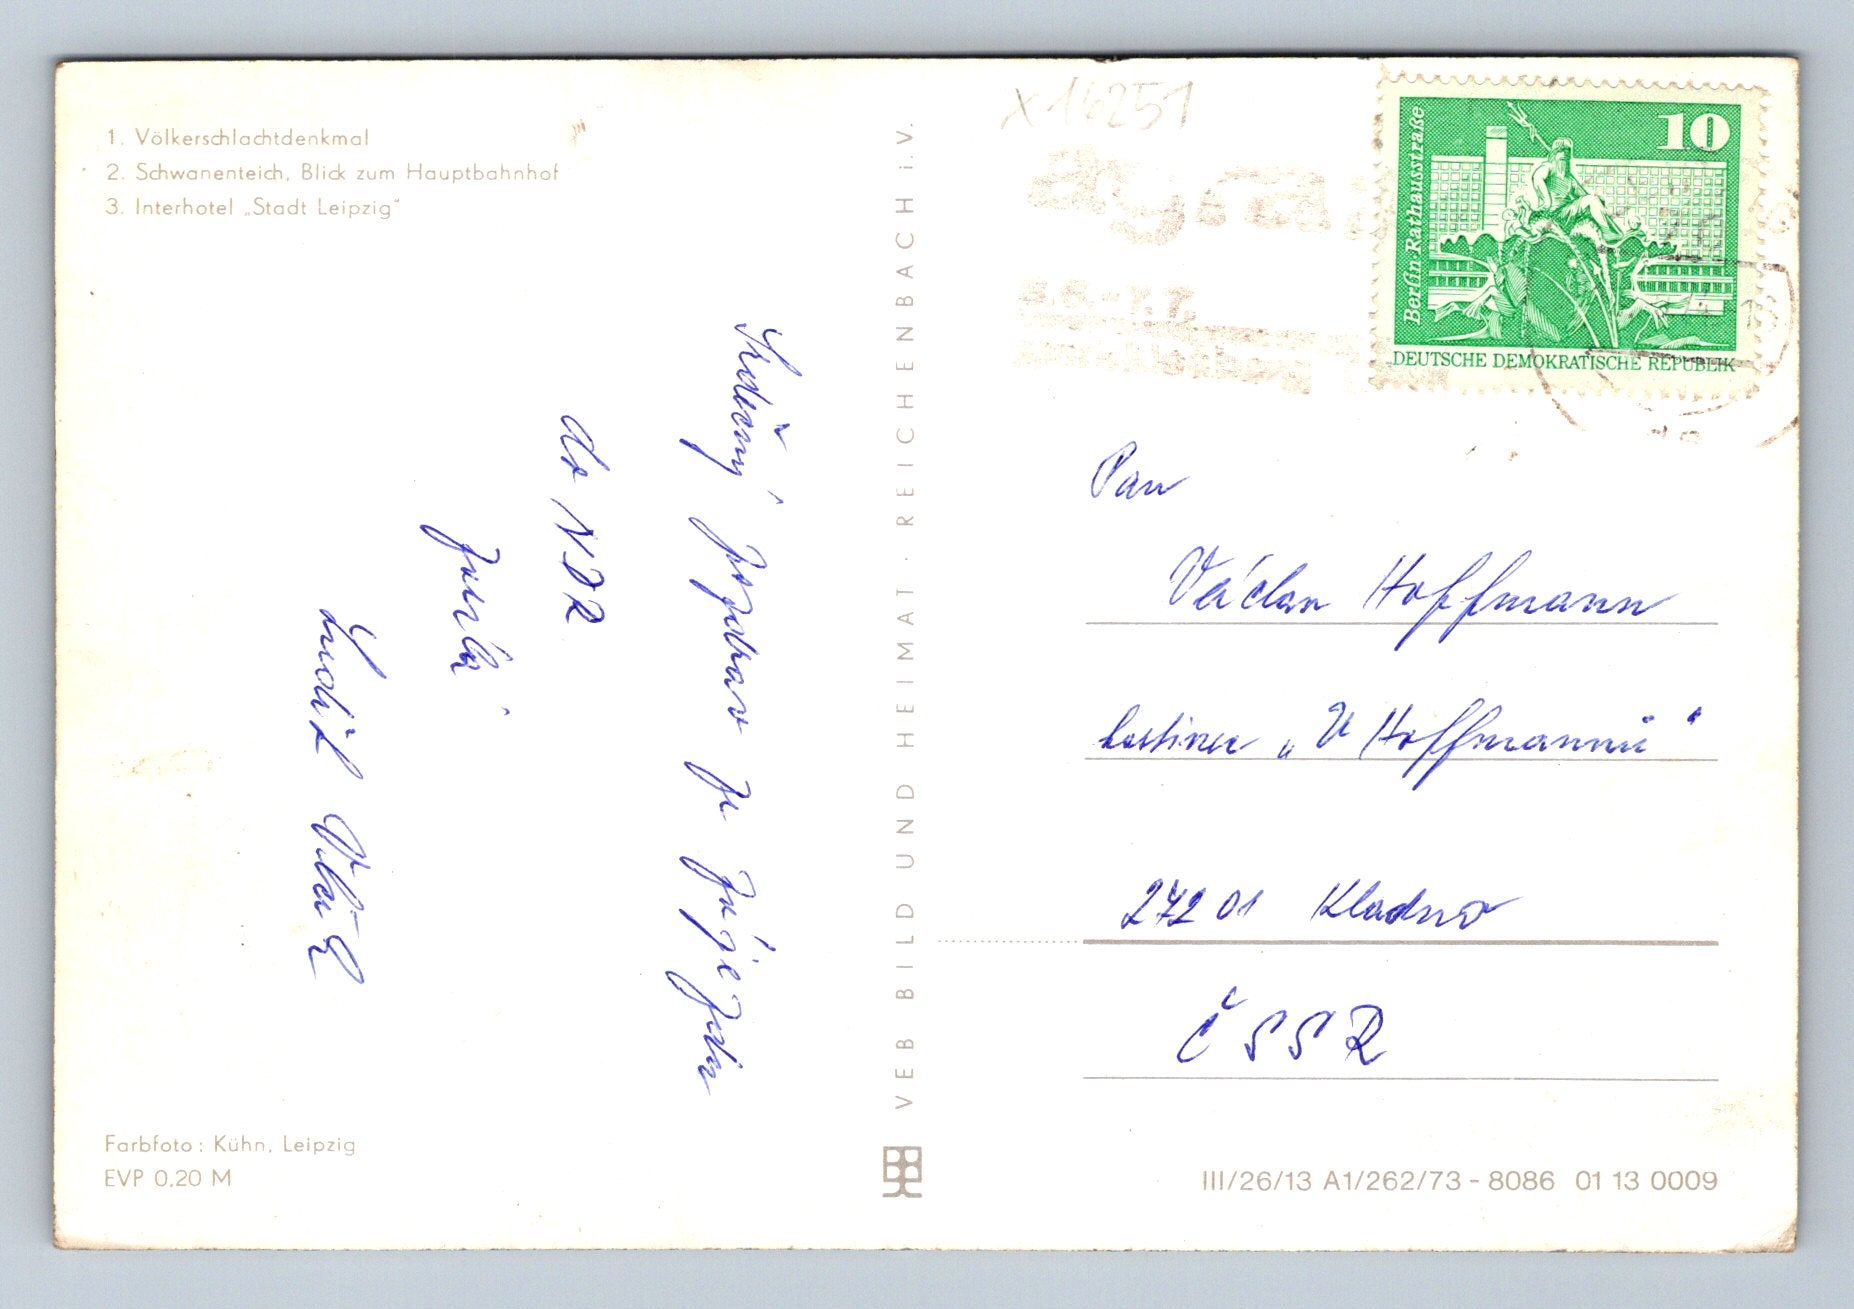 1. Völkerschlachtdenkmal
2. Schwanenteich, Blick zum Hauptbahnhof
3. Interhotel „Stadt Leipzig“
Srdečný pozdrav ze zájezdu
do NDR
Luděk
Farbfoto: Kühn, Leipzig
EVP 0,20 M
VEB BILD UND HEIMAT · REICHENBACH i. V.
x 16251
agra
10
Berlin·Rathausstraße
DEUTSCHE DEMOKRATISCHE REPUBLIK
Pan
Václav Hoffmann
hostinec „U Hoffmannů“
272 01 Kladno
ČSSR
III/26/13 A1/262/73 - 8086 01 13 0009